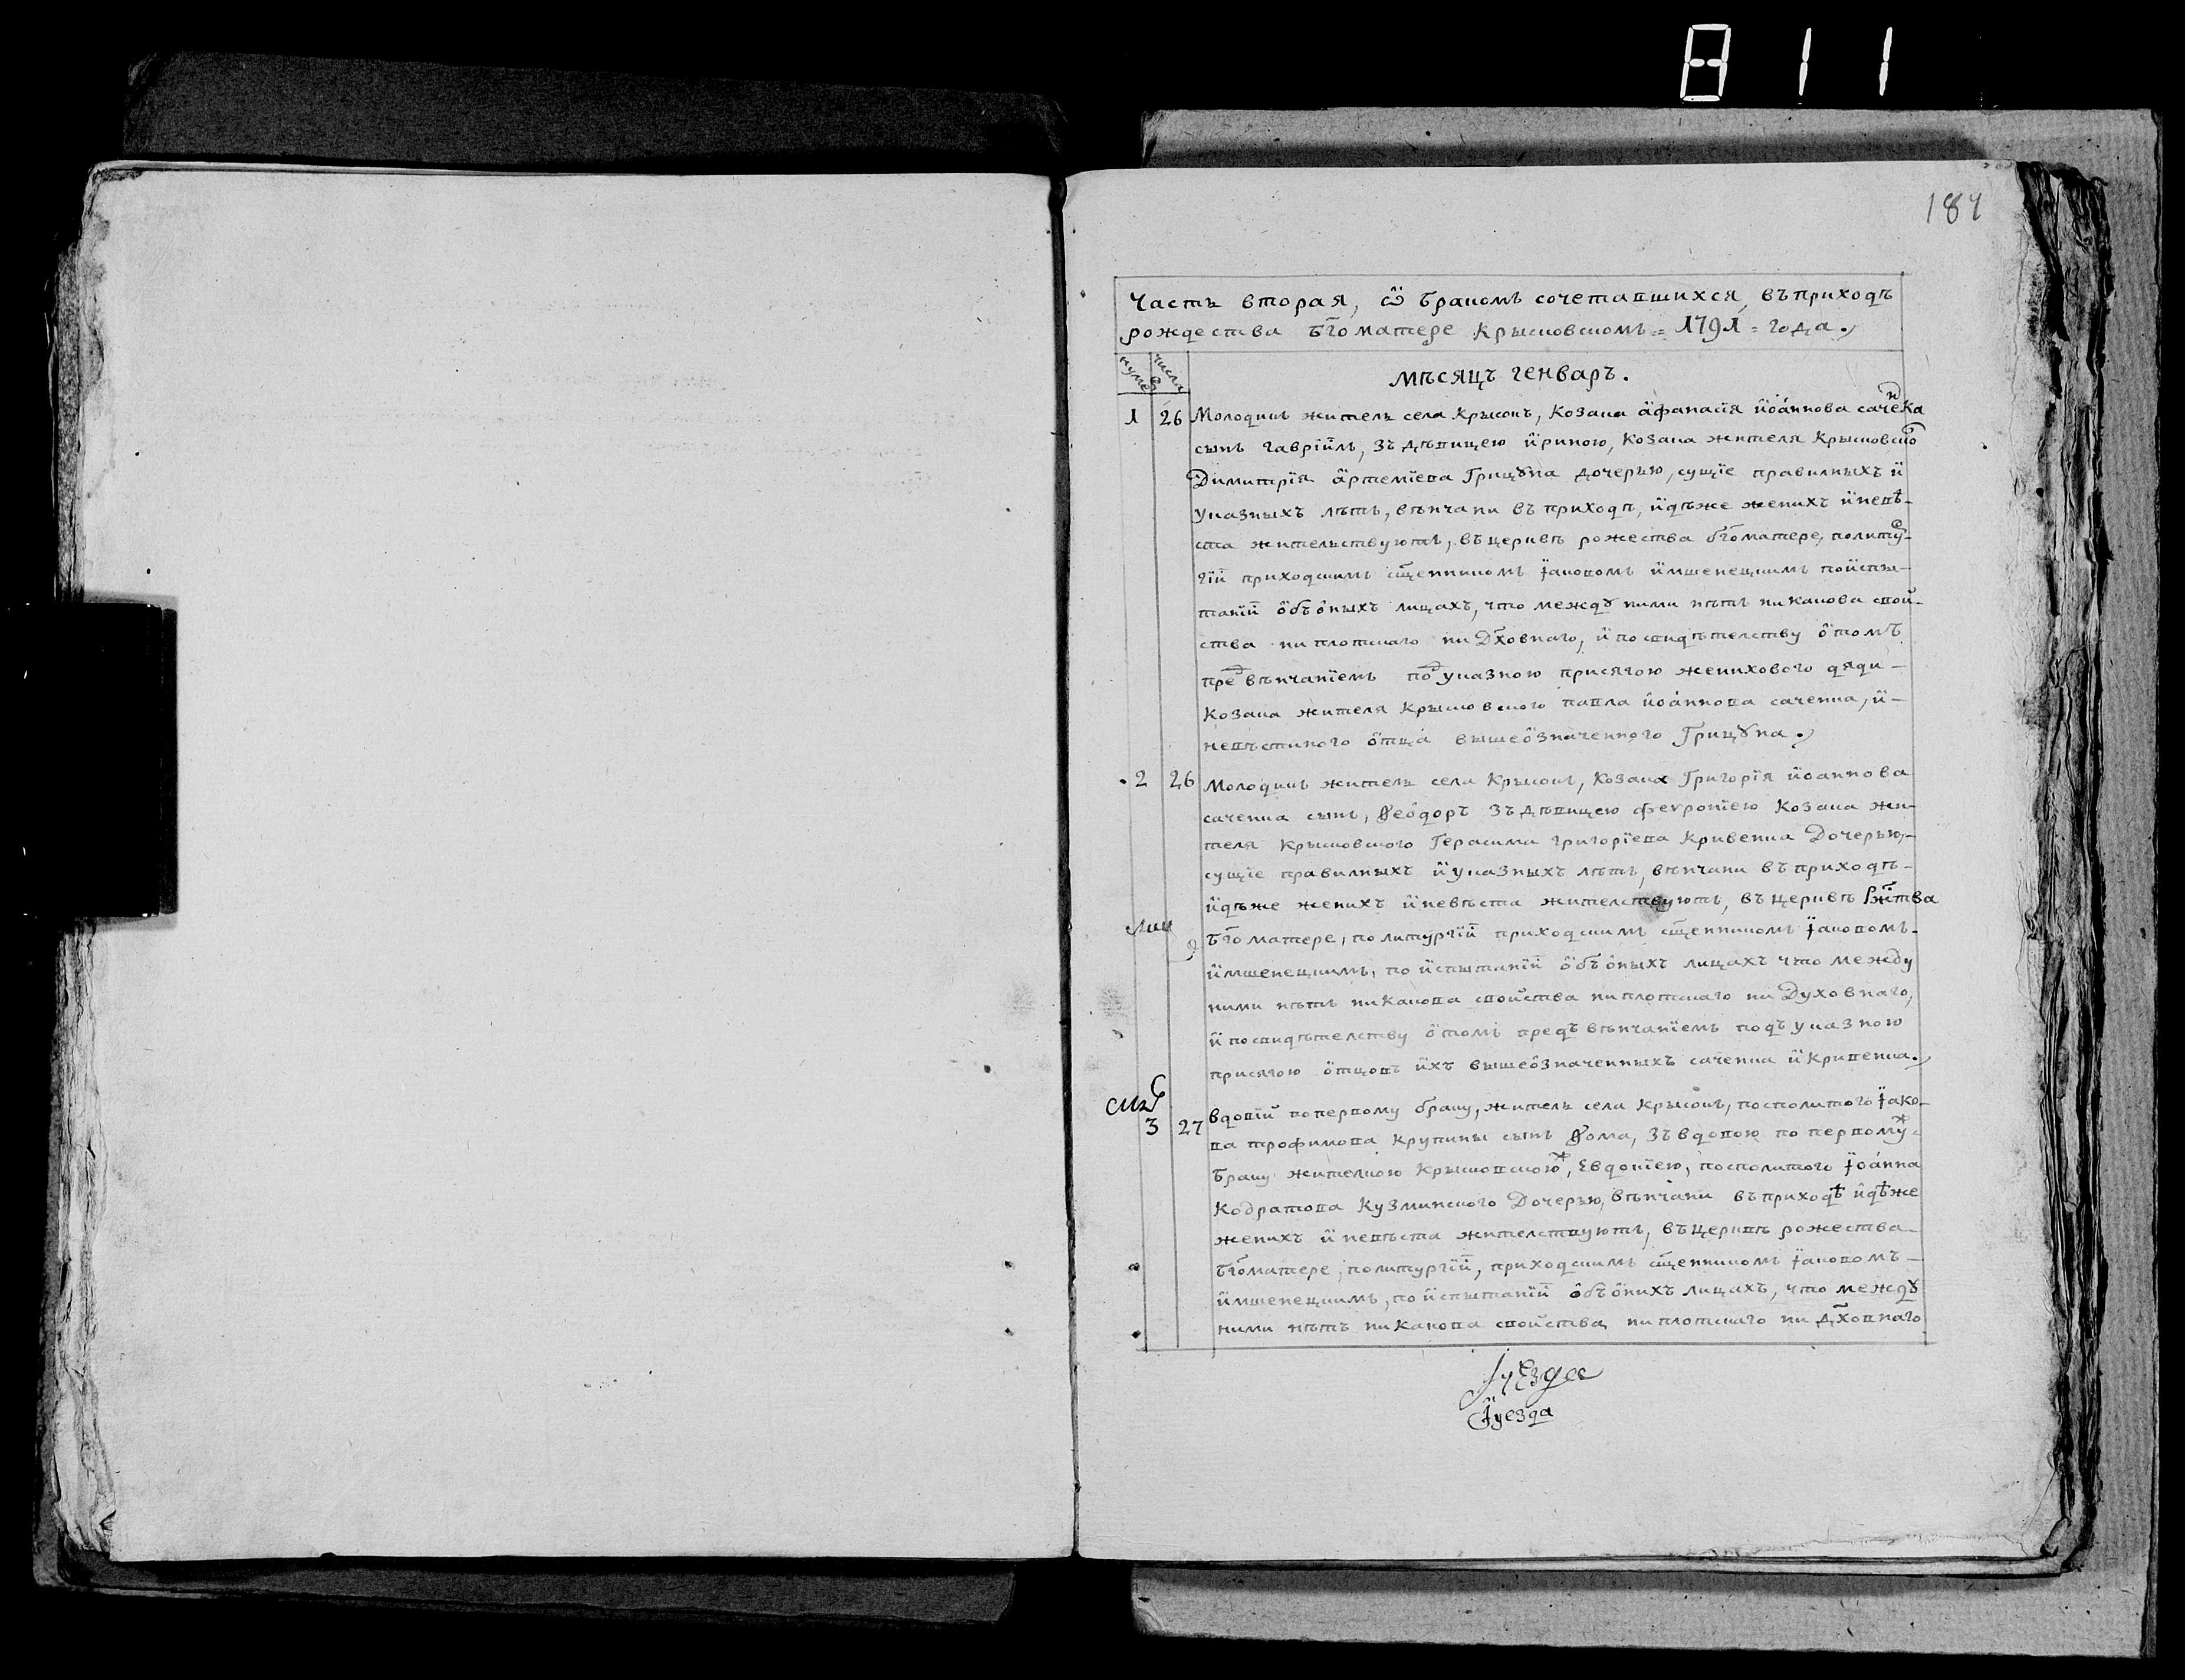 811
187
Часть вторая, ѽ бракомъ сочетавшихся, въ приходѣ
рождества бг҃оматере Крысковскомъ = 1791 = года.
нумеръ числа
мѣсяцъ генваръ.
1 26 Молодикъ житель села Крысокъ, Козака а҆фанасїя і҆ѡа́ннова саченка
сынъ гаврїилъ, зъ дѣвицею и҆риною, Козака жителя Крысковского
Димитрїя а҆ртемїева Грицꙋна дочерью, сущїе правилныхъ и҆
указныхъ лѣтъ, вѣнчани въ приходѣ, и҆дѣже женихъ и҆ невѣ-
ста жительствуютъ, въ церквѣ рожества бг҃оматере, по литур-
гїи приходскимъ сщ҃енникомъ Іаковомъ и҆мшенецкимъ по и҆спы-
танїи о҆бъ о҆ныхъ лицахъ, что междꙋ ними нѣтъ никакова свой-
ства ни плотскаго ни Дх҃овнаго, и҆ по свидѣтелству о҆ томъ
предъ вѣнчанїемъ подъ указною присягою женихового дяди -
Козака жителя Крысковского павла і҆ѡа́ннова саченка, и҆ -
невѣстиного о҆тца вышео҆значенного Грицꙋна.
2 26 Молодикъ житель села Крысокъ, Козака Григорїя і҆ѡаннова
саченка сынъ, Ѳео҆доръ зъ дѣвицею феѵронїею Козака жи-
теля Крысковского Герасима григорїева Кривенка Дочерью, -
сущїе правилныхъ и҆ указныхъ лѣтъ, вѣнчани въ приходѣ -
и҆дѣже женихъ и҆ невѣста жителствуютъ, въ церквѣ Рж҃тва
бг҃оматере, по литургїи приходскимъ сщ҃енникомъ Іаковомъ -
и҆мшенецкимъ, по и҆спытанїи о҆бъ о҆ныхъ лицахъ что между
ними нѣтъ никакова свойства ни плотскаго ни Духовнаго,
и҆ по свидѣтелству о҆ томъ предъ вѣнчанїемъ подъ указною
присягою о҆тцовъ и҆хъ вышео҆значенныхъ саченка и҆ Кривенка.
3 27 вдовїй по первому браку, житель села Крысокъ, посполитого Іако-
ва трофимова крупины сынъ Ѳома, зъ вдовою по первому
браку жителкою Крысковскою, Евдокїею, посполитого Іѡа́нна
Кодратова Кузминского Дочерью, вѣнчани въ приходѣ и҆дѣже
женихъ и҆ невѣста жителствуютъ, въ церквѣ рожества
бг҃оматере, по литургїи, приходскимъ сщ҃енникомъ Іаковомъ -
и҆мшенецкимъ, по и҆спытанїи о҆бъ о҆нихъ лицахъ, что междꙋ
ними нѣтъ никакова свойства ни плотскаго ни дх҃овнаго